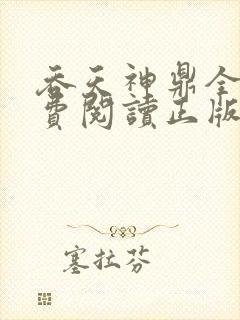 吞天神鼎全
費閱讀正版
塞拉芬